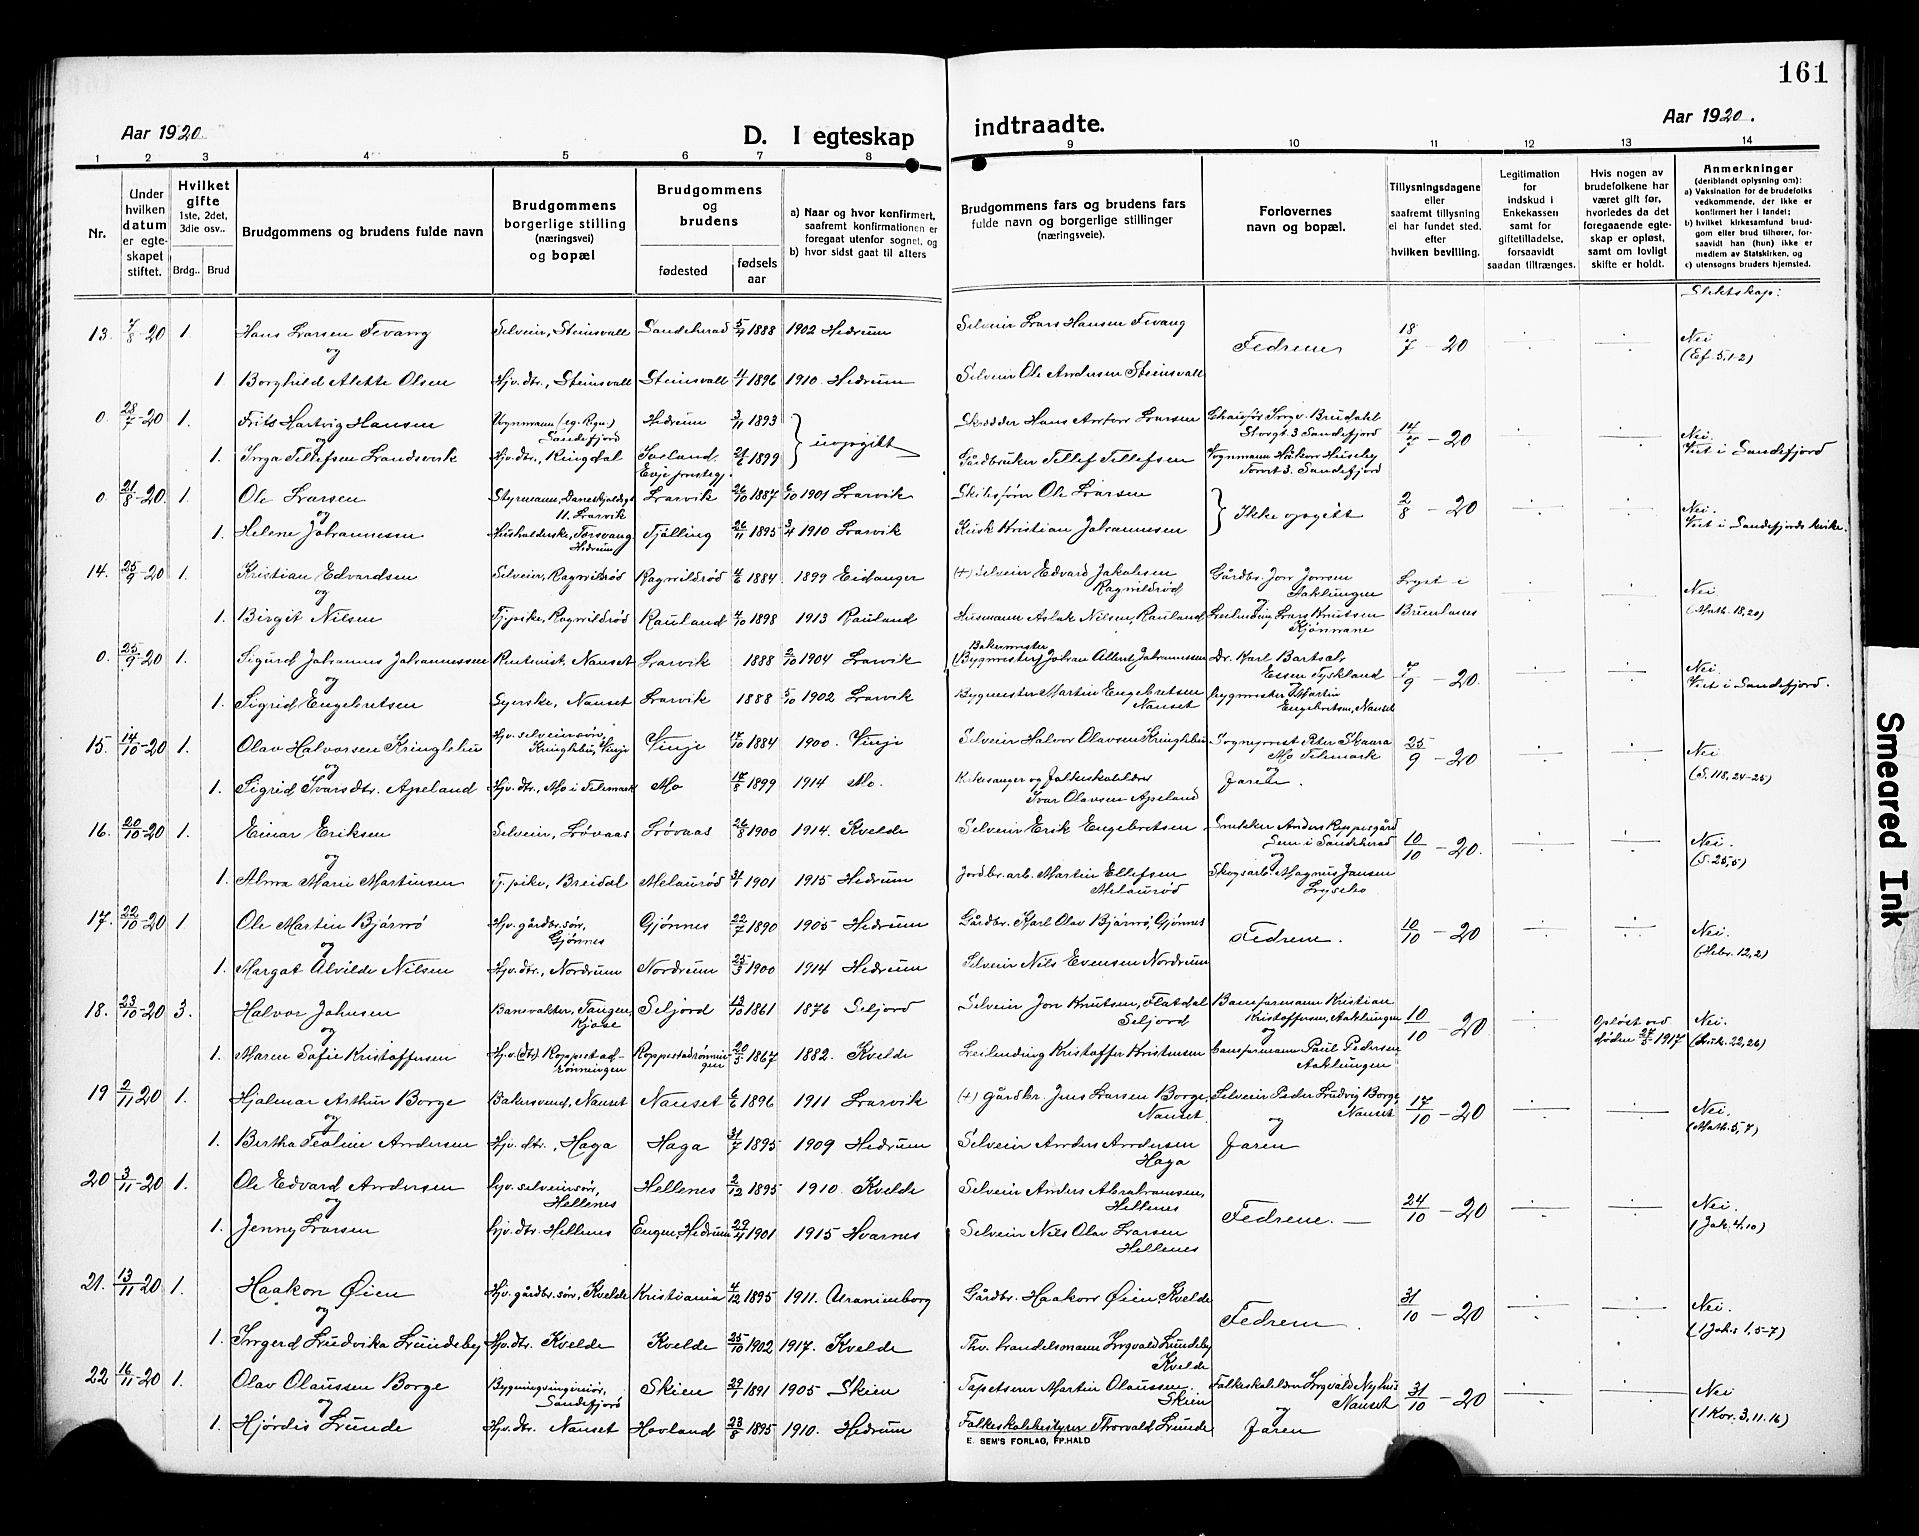 161
Aar 1920.
D. I egteskap
indtraadte.
Aar 1920.
1 2 3 4 5 6 7 8 9 10 11 12 13 14
Nr.
Under hvilken datum er egteskapet stiftet.
Hvilket gifte 1ste, 2det, 3die osv..
Brdg.. Brud
Brudgommens og brudens fulde navn
Brudgommens borgerlige stilling (næringsvei) og bopæl
Brudgommens og brudens
fødested
fødselsaar
a) Naar og hvor konfirmert, saafremt konfirmationen er foregaat utenfor sognet, og
b) hvor sidst gaat til alters
Brudgommens fars og brudens fars fulde navn og borgerlige stillinger (næringsveie).
Forlovernes navn og bopæl.
Tillysningsdagene eller saafremt tillysning ei har fundet sted. efter hvilken bevilling.
Legitimation for indskud i Enkekassen samt for giftetilladelse, forsaavidt saadan tiltrænges.
Hvis nogen av brudefolkene har været gift før, hvorledes da det foregaaende egteskap er opløst, samt om lovligt skifte er holdt.
Anmerkninger (deriblandt oplysning om): a) Vaksination for de brudefolks vedkommende, der ikke er konfirmert her i landet; b) hvilket kirkesamfund brudgom eller brud tilhører, forsaavidt han (hun) ikke er medlem av Statskirken, og c) utensogns bruders hjemsted.
Slektskap:
13. 7/8-20 1. Hans Larsen Fevang Selveier, Steinsvall Sandeherad 5/4 1888 1902 Hedrum Selveier Lars Hansen Fevang Fedrene 18/7-20 Nei (Ef. 5,1-2)
og
1. Borghild Alette Olsen Hjv. dtr., Steinsvall Steinsvall 4/7 1896 1910. Hedrum Selveier Ole Andersen Steinsvall
0. 28/7-20 1. Frits Hartvig Hansen Vognmann Sandefjord Hedrum 3/11 1893 uopgitt Skrædder Hans Anton Larsen Sandefjord 14/7-20 Nei. Viet i Sandefjord
og
1. Inga Tellefsen Landsverk Hjv. dtr., Ringdal 21/6 1899 Gårdbruker Tellef Tellefsen Vognmann Håkon Huseby Torvet 3. Sandefjord
0. 21/8-20. 1. Ole Larsen Styrmann, 11. Larvik Larvik 26/10 1887 6/10 1901 Larvik Skibsfører Ole Larsen Ikke opgitt 2/8-20 Nei. Viet i Sandefjords kirke.
og
1. Helene Johannessen Husholderske, Hedrum Tjølling 26/11 1895 3/4 1910 Larvik Kusk Kristian Johannessen
14. 25/9-20 1. Kristian Edvardsen Selveier, Ragnvildrød Ragnvildrød 4/6 1884 1899 Eidanger (+) Selveier Edvard Jakobsen Ragnvildrød Gårdbr. Jon Jonsen Aaklungen Lyst i Brunlanes Nei (Math. 18,20)
og
1. Birgit Nilsen Tj.pike, Ragnvildrød Rauland 4/10 1898 1913 Rauland Husmann Aslak Nilsen, Rauland Leilending Lars Knutsen
0. 25/9-20 1. Sigurd Johannes Johannessen Nanset Larvik 1888 2/10 1904 Larvik Bakermester (Bygmester) Johan Albert Johannessen Dr. Karl Bartsch, Essen Tyskland 7/9-20. Nei Viet i Sandefjord.
og
1. Sigrid Engebretsen Syerske, Nanset Larvik 1888 5/10 1902 Larvik Bygmester Martin Engebretsen Nanset bygmester Martin Engebretsen, Nanset
15. 14/10-20 1. Olav Halvorsen Kringlebu Hjv. selveiersøn, Kringlebu, Vinje Vinje 17/10 1884 1900. Vinje Selveier Halvor Olavsen Kringlebu Sogneprest Peter Skaara Mo Telemark 25/9-20 Nei (S. 118, 24-25)
og
1. Sigrid Ivarsdtr. Apeland Hjv. dtr., Mo i Telemark Mo 17/8 1899 1914 Mo. Kirkesanger og Folkeskolelærer Ivar Olavsen Apeland Faren.
16. 20/10-20 1. Einar Eriksen Selveier, Løvaas Løvaas 26/8 1900 1914. Kvelde Selveier Erik Engebretsen Snekker Anders Sem i Sandeherad 10/10-20. Nei. (S. 25,5)
og
1. Alma Marie Martinsen Tj.pike, Breidal Melaurød 31/1 1901 1915 Hedrum Jordbr.arb. Martin Ellefsen Melaurød Skogsarb. Magnus Jansen
17. 22/10-20 1. Ole Martin Bjørnø Hjv. gårdbr.søn, Gjønnes Gjønnes 22/7 1890 1905 Hedrum Gårdbr. Karl Olav Bjørnø, Gjønnes Fedrene. 10/10-20 Nei. (Hebr. 12,2)
og
1. Margot Alvilde Nilsen Hjv. dtr., Nordrum Nordrum 25/3 1900 1914 Hedrum Selveier Nils Evensen Nordrum
18. 23/10-20 3. Halvor Johnsen Banevokter, Tangen, Kjose Seljord 13/10 1861 1876 Seljord Selveier Jon Knutsen, Flatdal Seljord Baneformann Kristian Kristoffersen, Aaklungen 10/10-20 Opløst ved døden 27/5 1917 Nei. (Luk. 22,26)
og
1. Maren Sofie Kristoffersen Hjv. (dtr) Roppestadrønningen Roppestadrønningen 20/3 1867 1882. Kvelde Leilending Kristoffer Kristensen baneformann Paul Pedersen Aaklungen
19 2/11 20 1. Hjalmar Arthur Borge Bakersvend, Nanset Nanset 6/6 1896 1911 Larvik (+) gårdbr Jens Larsen Borge, Nanset Selveier Peder Ludvig Borge, Nanset 17/10-20 Nei. (Math. 5,7)
og
1. Bertha Teoline Andersen Hjv. dtr., Haga Haga 31/7 1895 1909 Hedrum Selveier Anders Andersen Haga Faren
20 3/11-20 1. Ole Edvard Andersen hjv. selveiersøn, Hellenes Hellenes 2/12 1895 1910. Kvelde Selveier Anders Abrahamsen, Hellenes Fedrene. 24/10-20 Nei. (Jak. 4,10)
og
1. Jenny Larsen hjv. dtr. Hellenes Engen, Hedrum 29/4 1901 1915 Hvarnes Selveier Nils Olav Larsen Hellenes
21. 13/11 20 1. Haakon Øien Hjv. gårdbr. søn, Kvelde Kristiania 4/12 1895 1911. Uranienborg Gårdbr. Haakon Øien, Kvelde Fedrene. 31/10-20 Nei. (1 Joh. 1, 5-7)
og
1. Ingerd Ludvika Lundeby Hjv. dtr. Kvelde Kvelde 25/10 1902 1917. Kvelde Fhv. handelsmann Ingvald Lundeby Kvelde
22 16/11-20 1. Olav Olaussen Borge Bygningsingeniør, Sandefjord Skien 29/1 1891 1905 Skien Tapetserer Martin Olaussen Skien Folkeskolelærer Ingvald Nyhus Nanset 31/10-20 Nei (1 Kor. 3, 11. 16)
og
1. Hjørdis Lunde Hjv. dtr. Nanset Hovland 23/8 1895 1910. Hedrum Folkeskolebestyrer Thorvald Lunde Faren
E. SEM'S FORLAG, FR.HALD
Smeared Ink